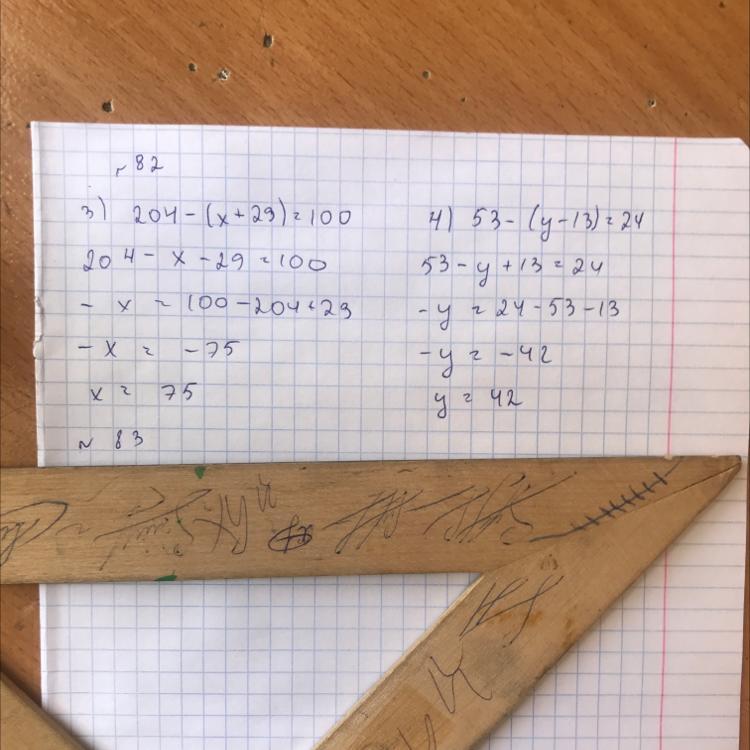 №82
3) 204-(x+29)=100
204-x-29=100
-x=100-204+29
-x=-75
x=75
4) 53-(y-13)=24
53-y+13=24
-y=24-53-13
-y=-42
y=42
№83